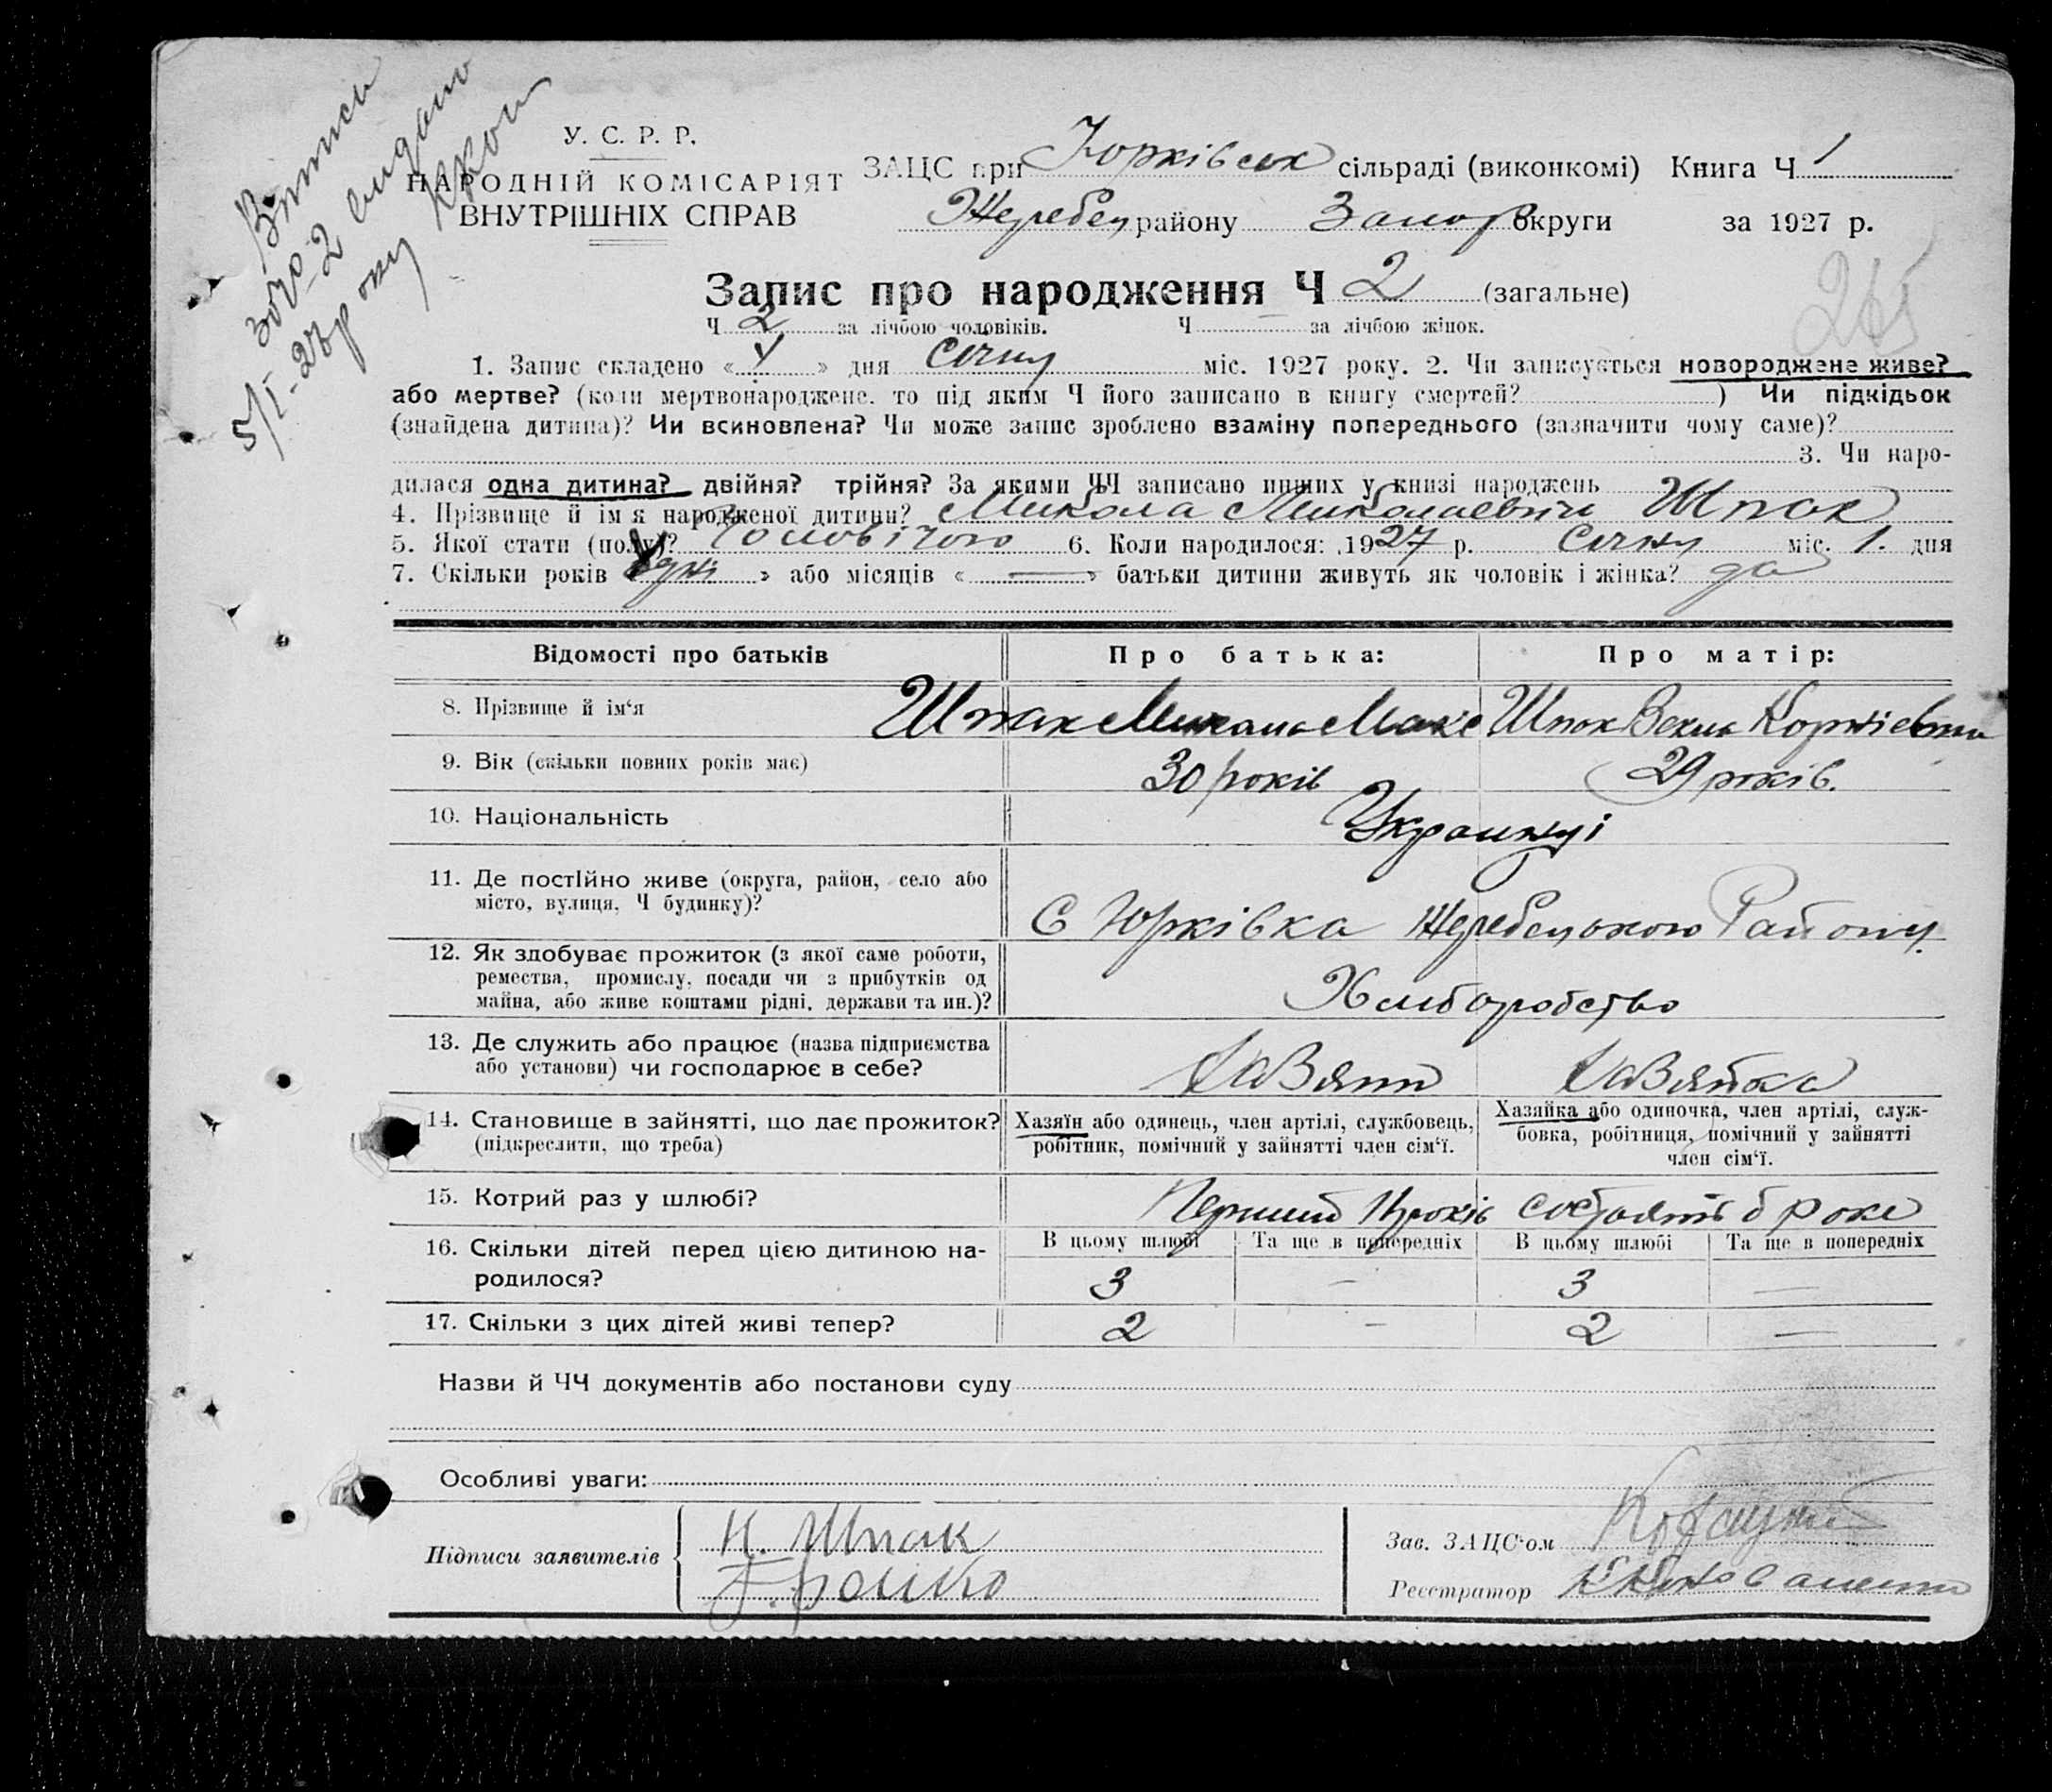 Витись
видано
У. С. Р. Р.
НАРОДНІЙ КОМІСАРІЯТ
ВНУТРІШНІХ СПРАВ
ЗАЦС при Юрківськ сільраді (виконкомі) Книга Ч 1
Жеребец району Запор округи за 1927 р.
Запис про народження Ч 2 (загальне)
265
Ч 2 за лічбою чоловіків. Ч — за лічбою жінок.
1. Запис складено « » дня Січня міс. 1927 року. 2. Чи записується новороджене живе?
або мертве? (коли мертвонароджене, то під яким Ч його записано в книгу смертей? ) Чи підкідьок
(знайдена дитина)? Чи всиновлена? Чи може запис зроблено взаміну попереднього (зазначити чому саме)?
3. Чи наро-
дилася одна дитина? двійня? трійня? За якими ЧЧ записано инших у книзі народжень
4. Прізвище й ім'я народженої дитини? Микола Миколаевич Шпак
5. Якої стати (полу)? Чоловічого 6. Коли народилося: 1927 р. Січня міс. 1. дня
7. Скільки років « » або місяців « — » батьки дитини живуть як чоловік і жінка? да
Відомості про батьків Про батька: Про матір:
8. Прізвище й ім'я Шпак Микола Макс Шпак Векла Корніевна
9. Вік (скільки повних років має) 30 років 29 років.
10. Національність Украинці
11. Де постійно живе (округа, район, село або
місто, вулиця, Ч будинку)? С Юрківка Жеребецького Району.
12. Як здобуває прожиток (з якої саме роботи,
ремества, промислу, посади чи з прибутків од
майна, або живе коштами рідні, держави та ин.)? Хлиборобство
13. Де служить або працює (назва підприємства
або установи) чи господарює в себе? Хазяин Хазяйка
14. Становище в зайнятті, що дає прожиток?
(підкреслити, що треба)
Хазяїн або одинець, член артілі, службовець,
робітник, помічний у зайнятті член сім'ї.
Хазяйка або одиночка, член артілі, служ-
бовка, робітниця, помічний у зайнятті
член сім'ї.
15. Котрий раз у шлюбі? Перший
16. Скільки дітей перед цією дитиною на-
родилося?
В цьому шлюбі Та ще в попередніх В цьому шлюбі Та ще в попередніх
3 — 3 —
17. Скільки з цих дітей живі тепер? 2 — 2 —
Назви й ЧЧ документів або постанови суду
Особливі уваги:
Підписи заявителів Н. Шпак
Зав. ЗАЦС'ом
Реєстратор